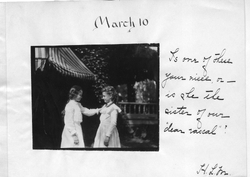 March 10
Is one of these
your niece, or
is she the
sister of our
"dear rascal"!